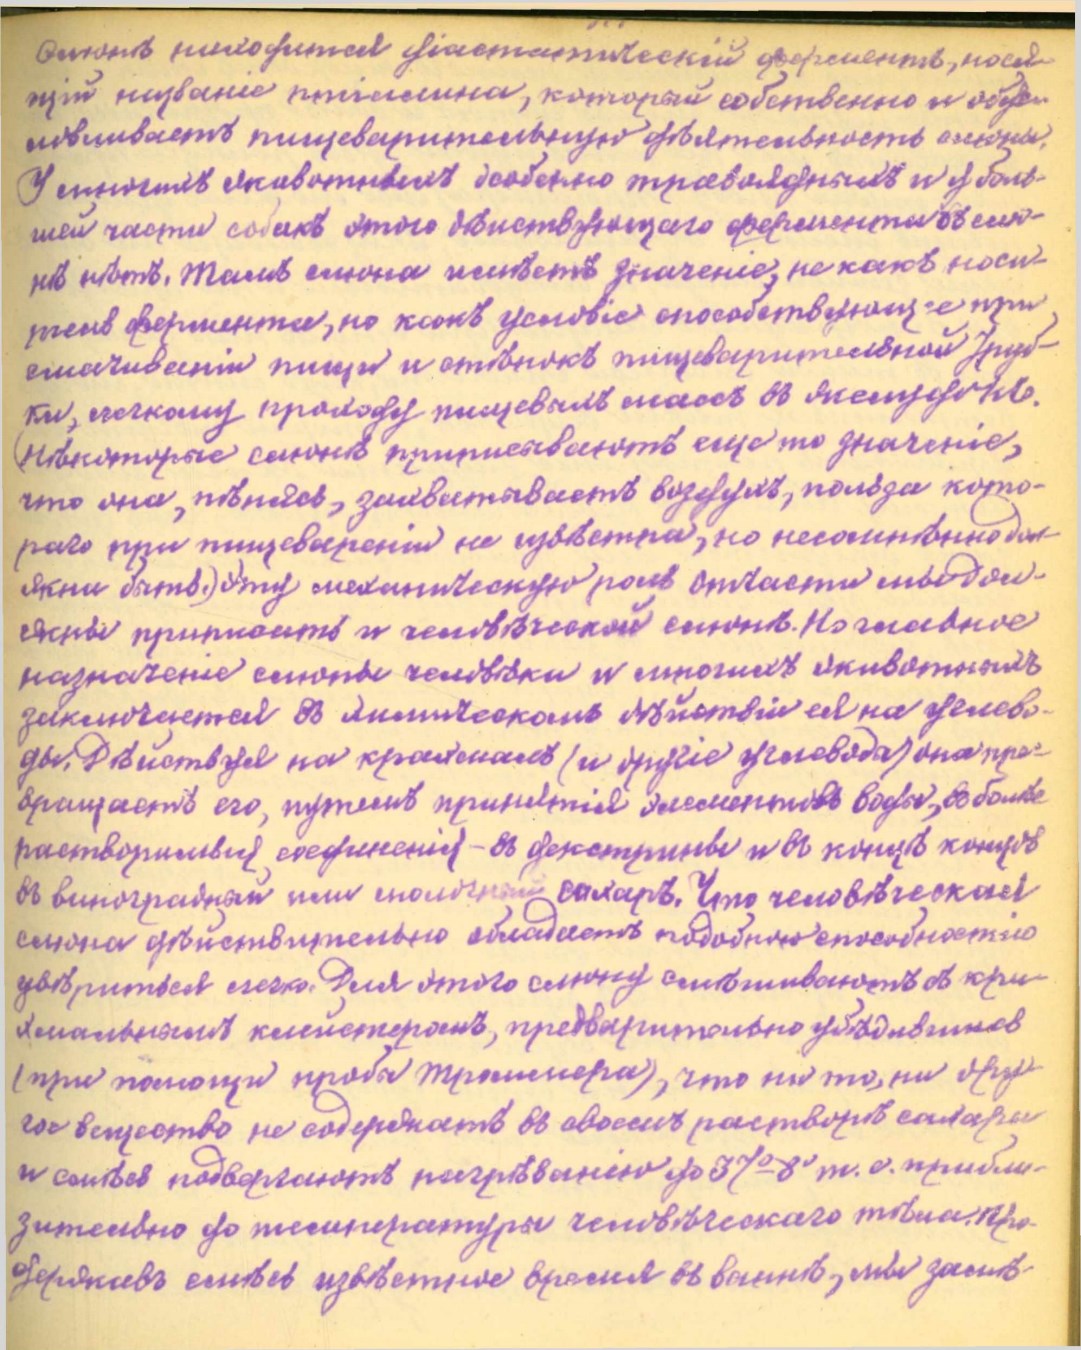 слюнѣ находится діастатическій ферментъ, нося-
щій названіе птіалина, который собственно и обус-
ловливаетъ пищеварительную дѣятельность слюны.
У многихъ животныхъ особенно травоядныхъ и у боль-
шей части собакъ этого дѣйствующаго фермента въ слю-
нѣ нѣтъ. Тамъ слюна имѣетъ значеніе, не какъ носи-
тель фермента, но какъ условіе способствующее при
смачиваніи пищи и стѣнокъ пищеварительной труб-
ки, легкому проходу пищевыхъ массъ въ желудокъ.
(Нѣкоторые слюнѣ приписываютъ еще то значеніе,
что она, пѣнясь, захватываетъ воздухъ, польза кото-
раго при пищевареніи не извѣстна, но несомнѣнно дол-
жна быть.) Эту механическую роль отчасти мы дол-
жны приписать и человѣческой слюнѣ. Но главное
назначеніе слюны человѣка и многихъ животныхъ
заключается въ химическомъ дѣйствіи ея на углево-
ды. Дѣйствуя на крахмалъ (и другіе углеводы) она пре-
вращаетъ его, путемъ принятія элементовъ воды, въ болѣе
растворимыя соединенія - въ декстрины и въ концѣ концовъ
въ виноградный или молочный сахаръ. Что человѣческая
слюна дѣйствительно обладаетъ подобною способностью
увѣриться легко. Для этого слюну смѣшиваютъ съ кра-
хмальнымъ клейстеромъ, предварительно убѣдившись
(при помощи пробы Троммера), что ни то, ни дру-
гое вещество не содержатъ въ своемъ растворѣ сахара
и смѣсь подвергаютъ нагрѣванію до 37º-8º т. е. прибли-
зительно до температуры человѣческаго тѣла. Про-
державъ смѣсь извѣстное время въ ваннѣ, мы замѣ-